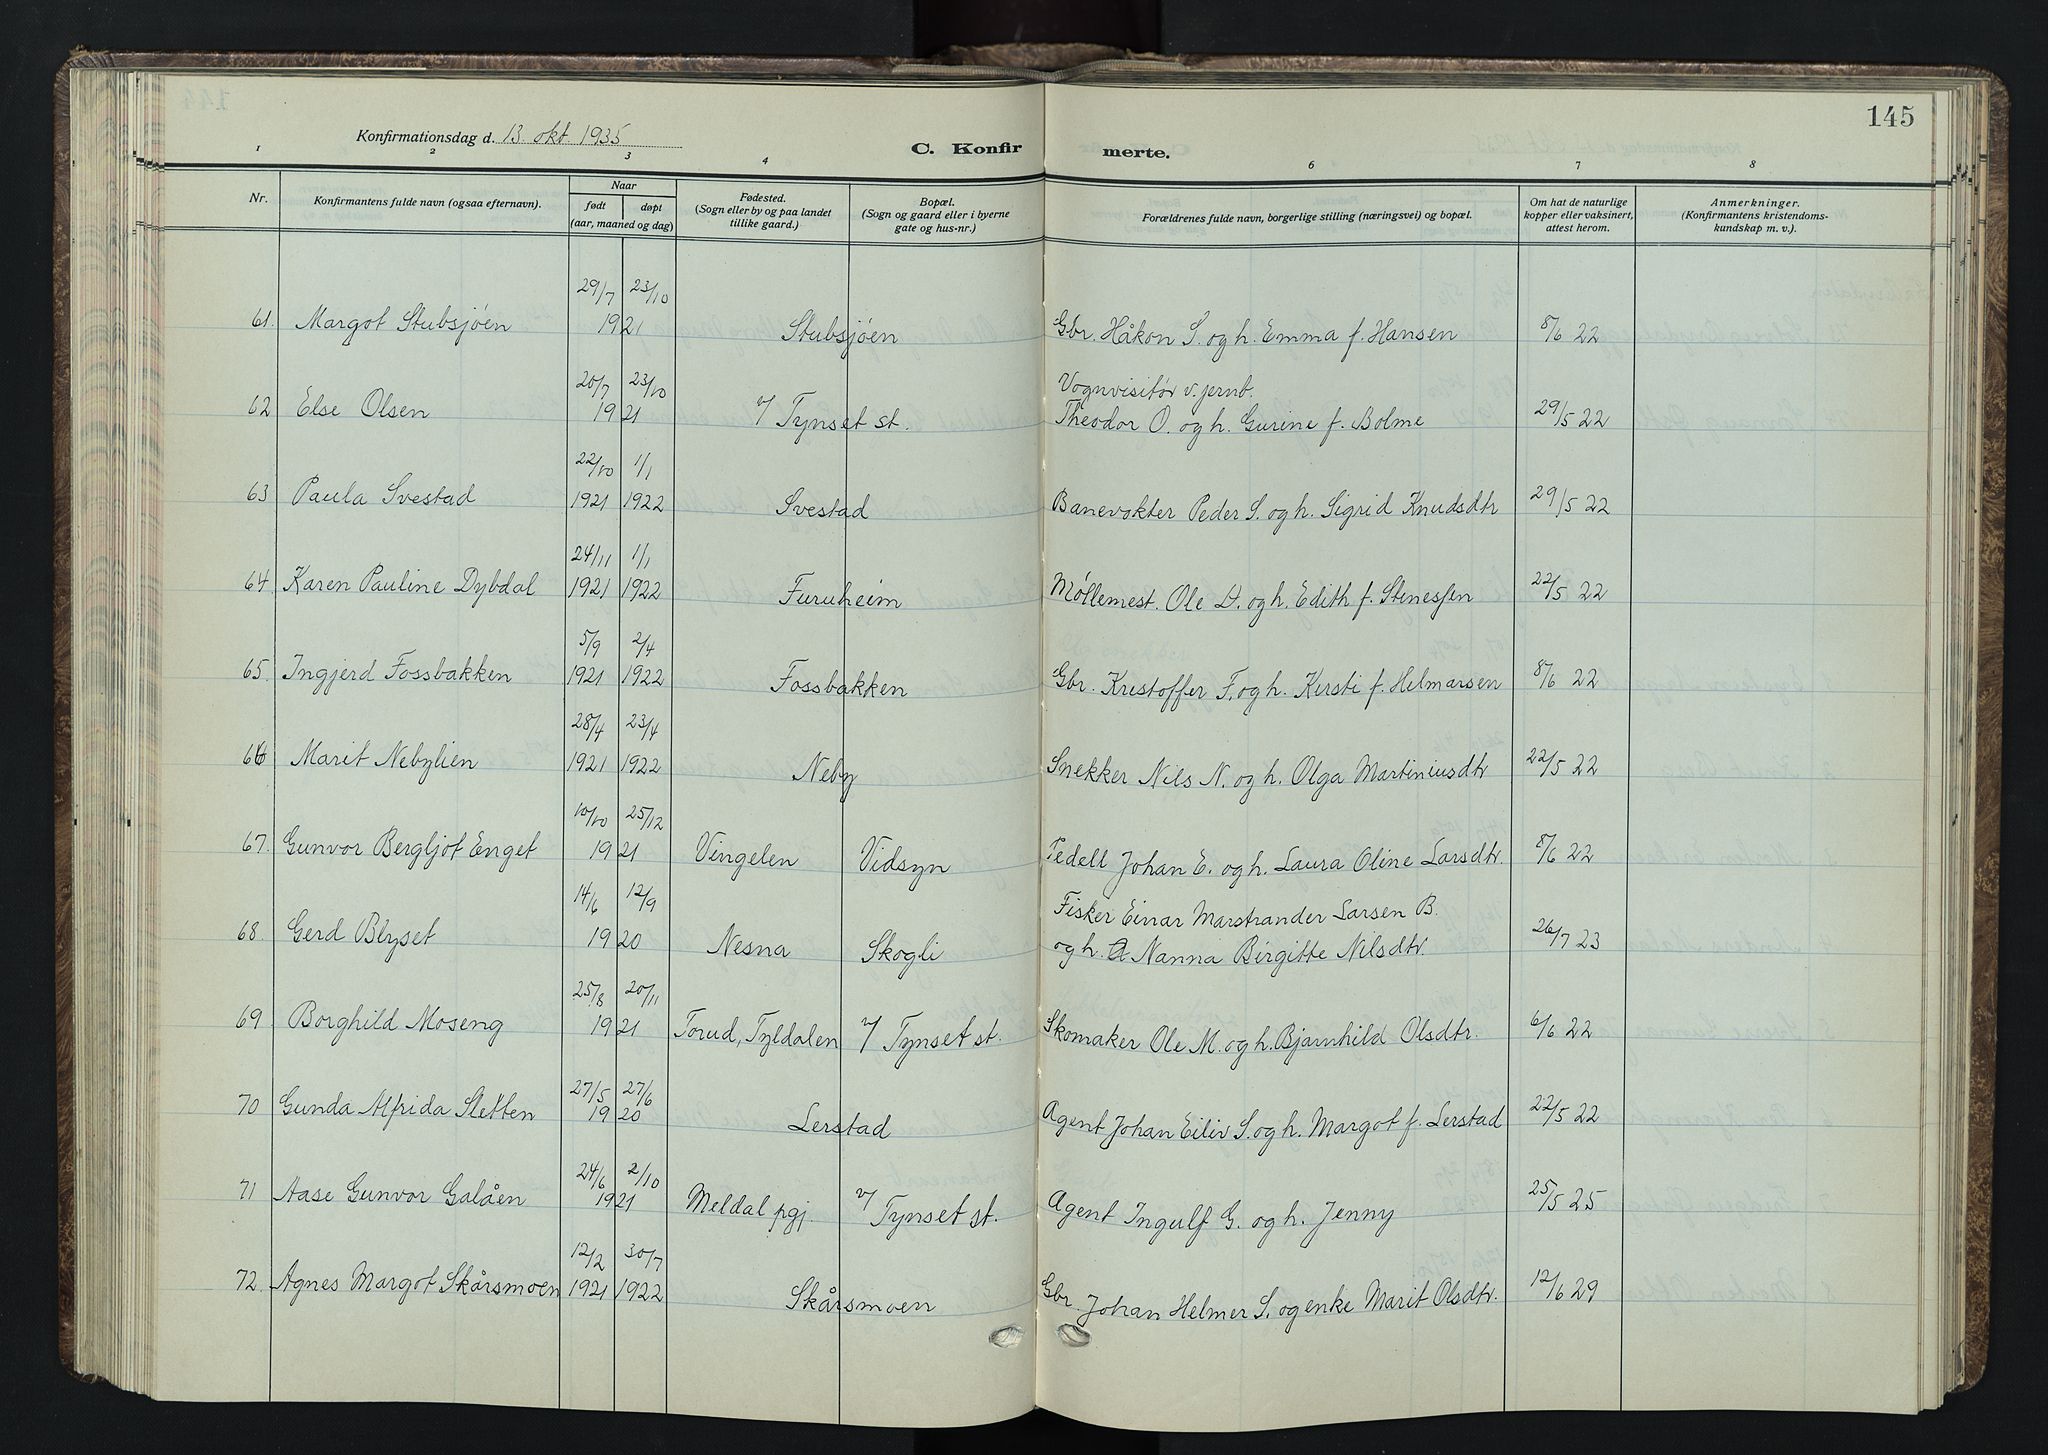 145
Konfirmationsdag d. 13. okt 1935
C. Konfir merte.
1 2 3 4 6 7 8
Nr. Konfirmantens fulde navn (ogsaa efternavn). Naar født døpt (aar, maaned og dag) Fødested. (Sogn eller by og paa landet tillike gaard.) Bopæl. (Sogn og gaard eller i byerne gate og hus-nr.) Forældrenes fulde navn, borgerlige stilling (næringsvei) og bopæl. Om hat de naturlige kopper eller vaksinert, attest herom. Anmerkninger. (Konfirmantens kristendoms-kundskap m. v.).
29/7 23/10
61. Margot Stubsjöen 1921 Stubsjöen Gbr. Håkon S. og h. Emma f. Hansen 8/6 22
20/7 23/10 Vognvisitør v. jernb.
62 Else Olsen 1921 v/ Tynset st. Theodor O. og h. Gurine f. Bolme 29/5 22
22/10 1/1
63 Paula Svestad 1921 1922 Svestad Banevokter Peder S. og h. Sigrid Knudsdtr 29/5 22
24/11 1/1
64 Karen Pauline Dybdal 1921 1922 Furuheim Møllemest. Ole D. og h. Edith f. Stenessen 22/5 22
5/9 2/4
65. Ingjerd Fossbakken 1921 1922 Fossbakken Gbr. Kristoffer F. og h. Kersti f. Helmarsen 8/6 22
28/4 23/4
66 Marit Nebylien 1921 1922 Neby Snekker Nils N. og h. Olga Martiniusdtr 22/5 22
10/10 25/12
67. Gunvor Bergljot Enget 1921 Vingelen Vidsyn Pedell Johan E. og h. Laura Oline Larsdtr. 8/6 22
14/6 12/9 Fisker Einar Marstrander Larsen B.
68. Gerd Blyset 1920 Nesna Skogli og h. Nanna Birgitte Nilsdtr. 26/7 23
25/8 20/11
69 Borghild Moseng 1921 Torud, Tyldalen v/ Tynset st. Skomaker Ole M. og h. Bjarnhild Olsdtr. 6/6 22
27/5 27/6
70 Gunda Alfrida Sletten 1920 Lerstad Agent Johan Eiliv S. og h. Margot f. Lerstad 22/5 22
24/6 2/10
71 Aase Gunvor Galåen 1921 Meldal pgj. v/ Tynset st. Agent Ingulf G. og h. Jenny 25/5 25
12/2 30/7
72. Agnes Margot Skårsmoen 1921 1922 Skårsmoen Gbr. Johan Helmer S. og enke Marit Olsdtr. 12/6 29